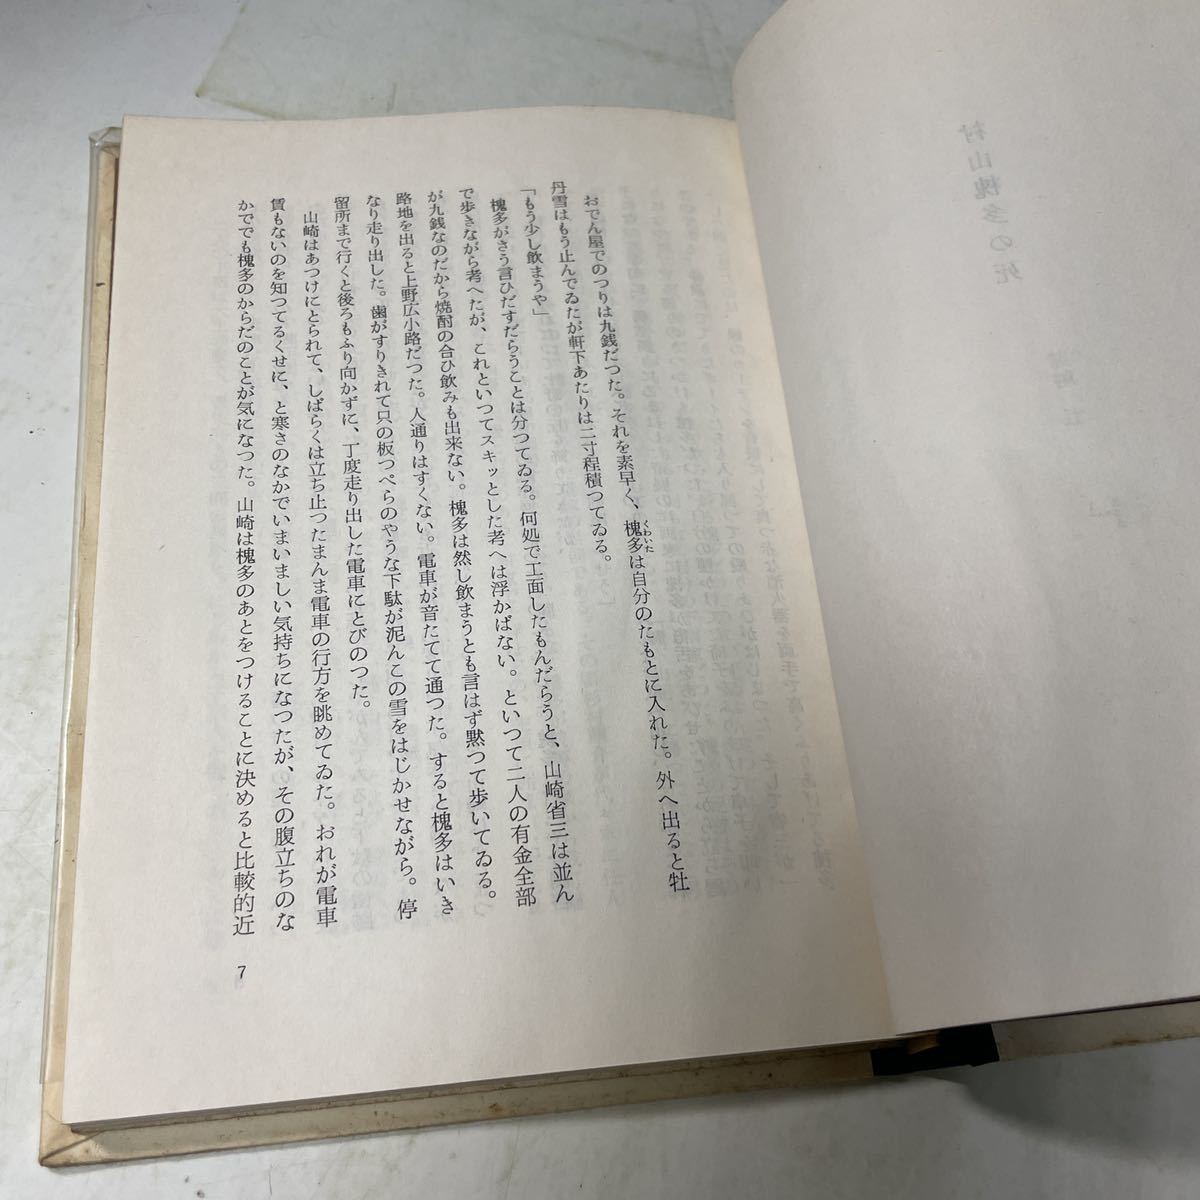 おでん屋でのつりは九銭だつた。それを素早く、槐多は自分のたもとに入れた。外へ出ると牡
くわいた
丹雪はもう止んでゐたが軒下あたりは二寸程積つてゐる。
「もう少し飲まうや」
槐多がさう言ひだすだらうことは分つてゐる。何処で工面したもんだらうと、山崎省三は並ん
で歩きながら考へたが、これといつてスキッとした考へは浮かばない。といつて二人の有金全部
が九銭なのだから焼酎の合ひ飲みも出来ない。槐多は然し飲まうとも言はず黙つて歩いてゐる。
路地を出ると上野広小路だつた。人通りはすくない。電車が音たてて通つた。すると槐多はいき
なり走り出した。歯がすりきれて只の板つぺらのやうな下駄が泥んこの雪をはじかせながら。停
留所まで行くと後ろもふり向かずに、丁度走り出した電車にとびのつた。
山崎はあつけにとられて、しばらくは立ち止つたまんま電車の行方を眺めてゐた。おれが電車
賃もないのを知つてるくせに、と寒さのなかでいまいましい気持ちになつたが、その腹立ちのな
かででも槐多のからだのことが気になつた。山崎は槐多のあとをつけることに決めると比較的近
7
村山槐多の死